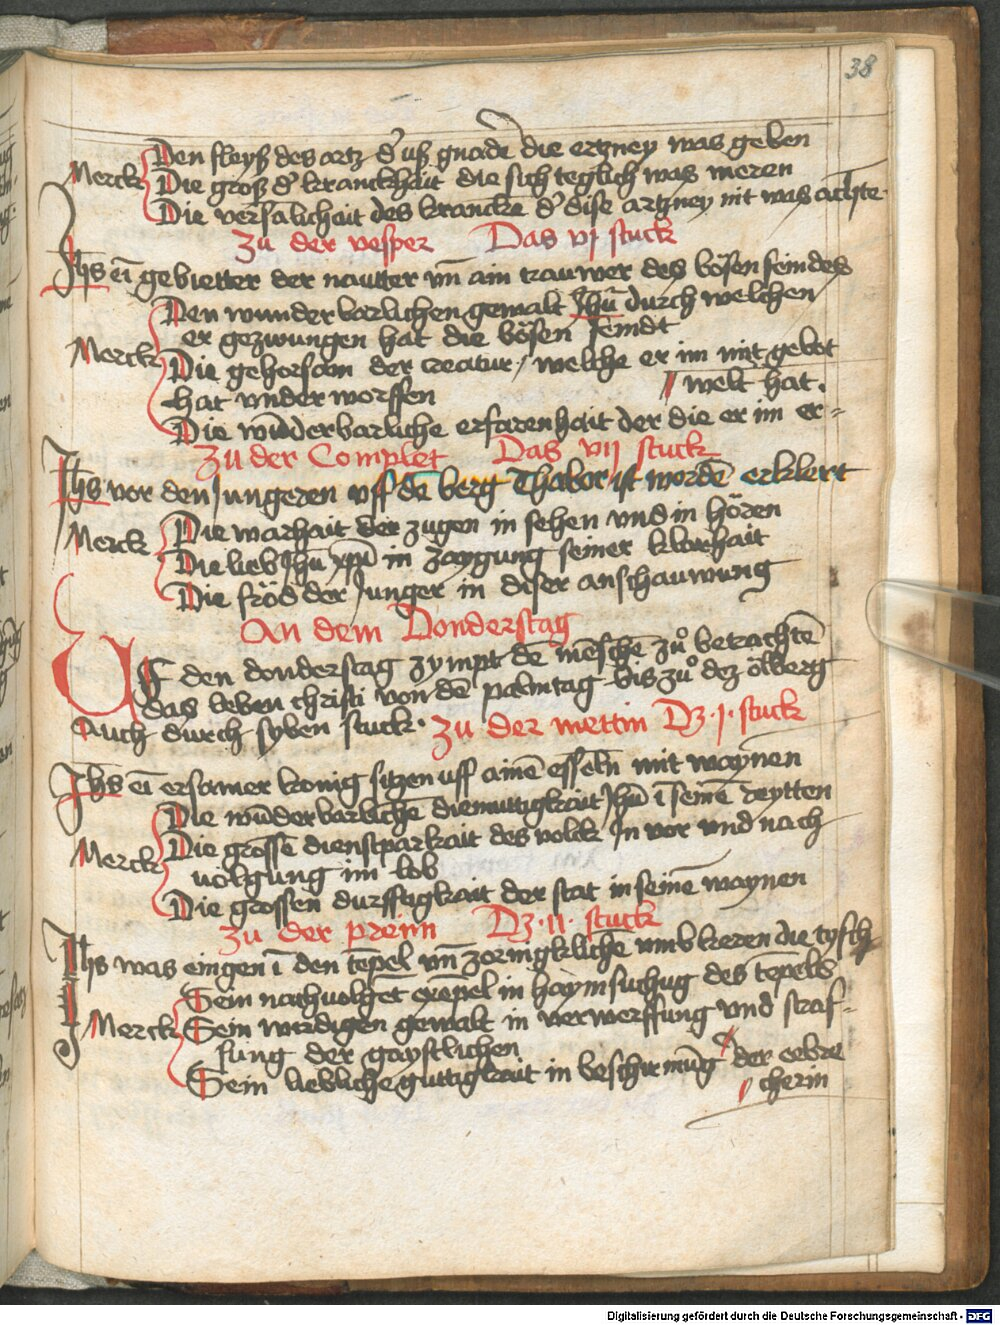 38
Den fleyß des artz d' uß gnadē die ertzney was geben
Merck Die groß d' kranckhait die sich teglich was meren
Die versalichait des kranckē d' dise artzney nit was achtē
Zu der vesper Das vj stuck
Jhs ei gebietter der nautter vn̄ ain trauwer des bösen feindes
Den wunderbarlichen gewalt Jhū durch welchen
er gezwungen hat die bösen feindt
Merck Die gehorsam der creatur / welche er im mit gebot
hat vnderworffen // welt hat.
Die wūderbarliche erfarenhait der die er im er=
Zu der Complet Das vij stuck
Jhs vor den Jungeren vff dē berg Thabor ist wordē erklert
Merck Die warhait der zugen in sehen vnd in hören
Die lieb Jhū xpī in zaygung seiner klarhait
Die fröd der Junger in diser anschauwung
An dem Donderstag
Uff den donderstag zympt dē mēschē zů betrachtē
das leben christi von dē palmtag biszů dez ölberg
Auch durch syben stuck. Zu der mettin Dz .j. stuck
Jhs ei ersamer konig sitzen uff ainē esseln mit waynen
Die wūderbarlichē diemuttigkait Jhū ī seinē reytten
Merck Die grossē dienstparkait des volck In vor vnd nach
volgung im lob
Die grossen durfftigkait der stat in seinē waynen
Zu der preim Dz .ii. stuck
Jhs was eingen ī den tēpel vn̄ zornigklichē vmbkeren die tysch
Sein nachvolget exēpel in haymsuchūg des tēpels
Merck Sein wirdigen gewalt in verwerffung vnd straf=
fung der gaystlichen
Sein liebliche guttigkait in beschirmūg der eebre
// cherin
Digitalisierung gefördert durch die Deutsche Forschungsgemeinschaft - DFG